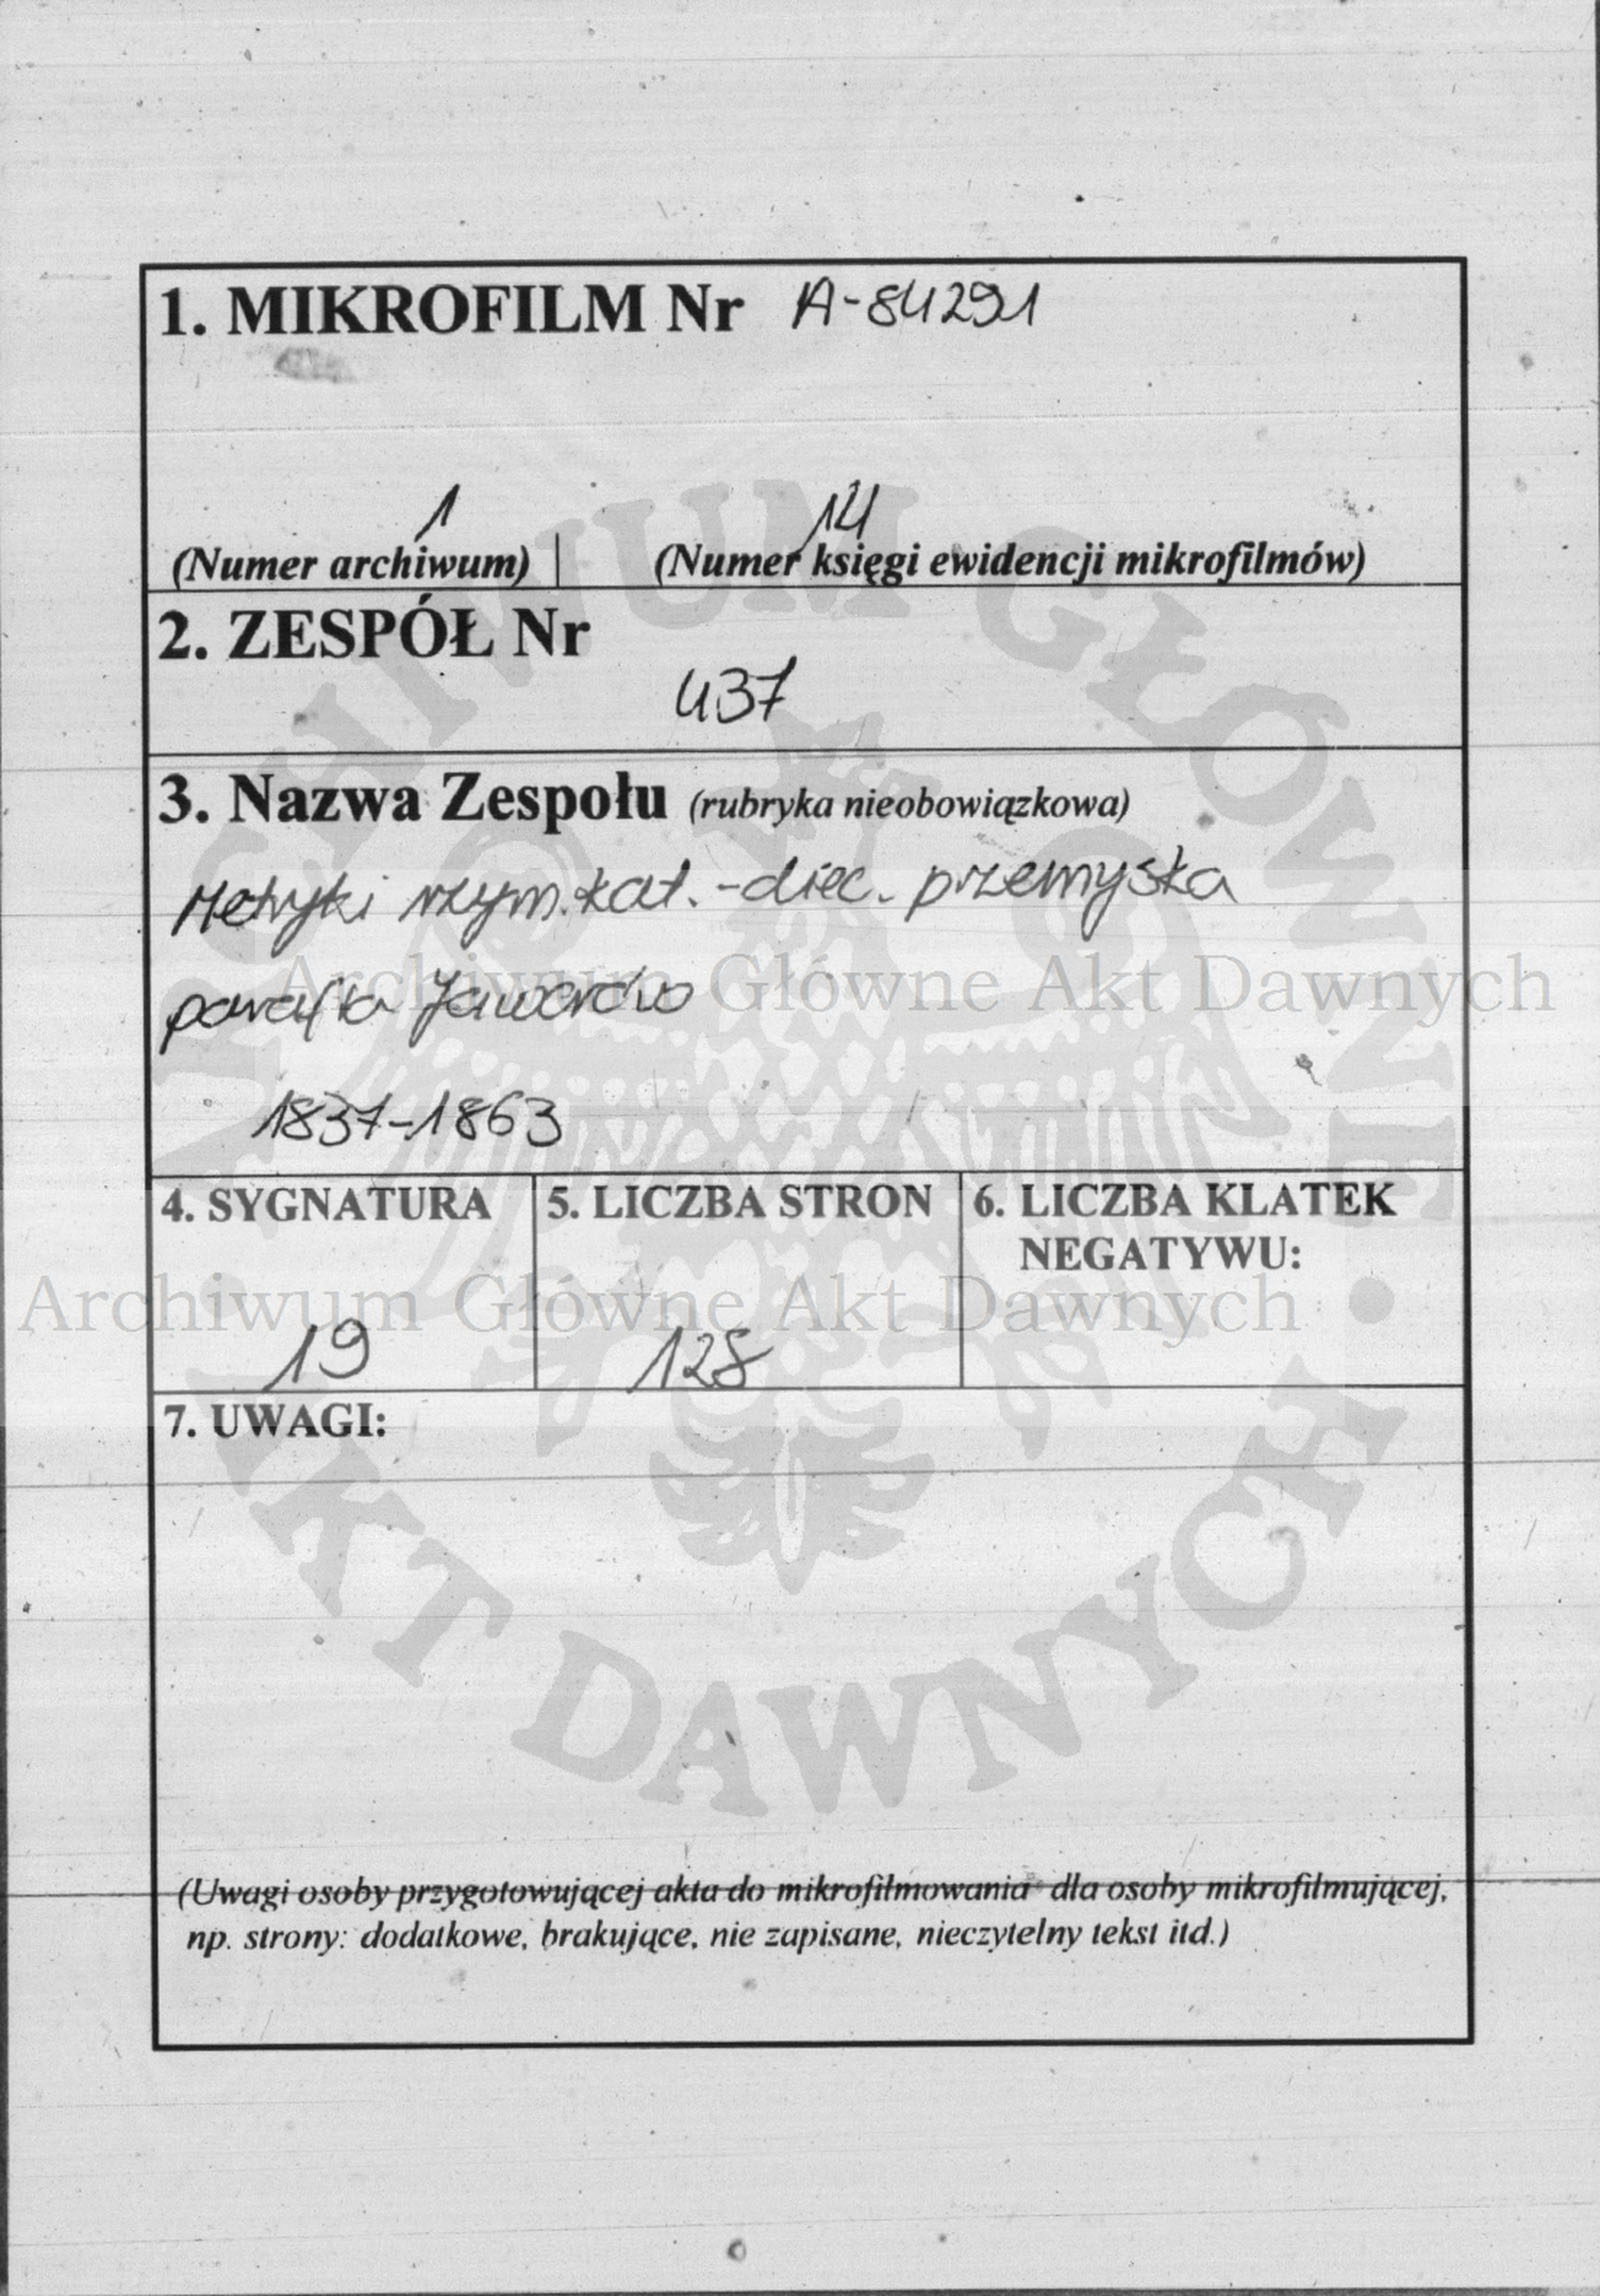 1. MIKROFILM Nr A-84291
1 14
(Numer archiwum) (Numer księgi ewidencji mikrofilmów)
2. ZESPÓŁ Nr
437
3. Nazwa Zespołu (rubryka nieobowiązkowa)
Metryki rzym.kat. - diec. przemyska
parafia
Archiwum Główne Akt Dawnych
1837-1863
4. SYGNATURA 5. LICZBA STRON 6. LICZBA KLATEK
NEGATYWU:
Archiwum Główne Akt Dawnych
19 128
7. UWAGI:
ARCHIWUM GŁÓWNE AKT DAWNYCH
(Uwagi osoby przygotowującej akta do mikrofilmowania dla osoby mikrofilmującej,
np. strony: dodatkowe, brakujące, nie zapisane, nieczytelny tekst itd.)